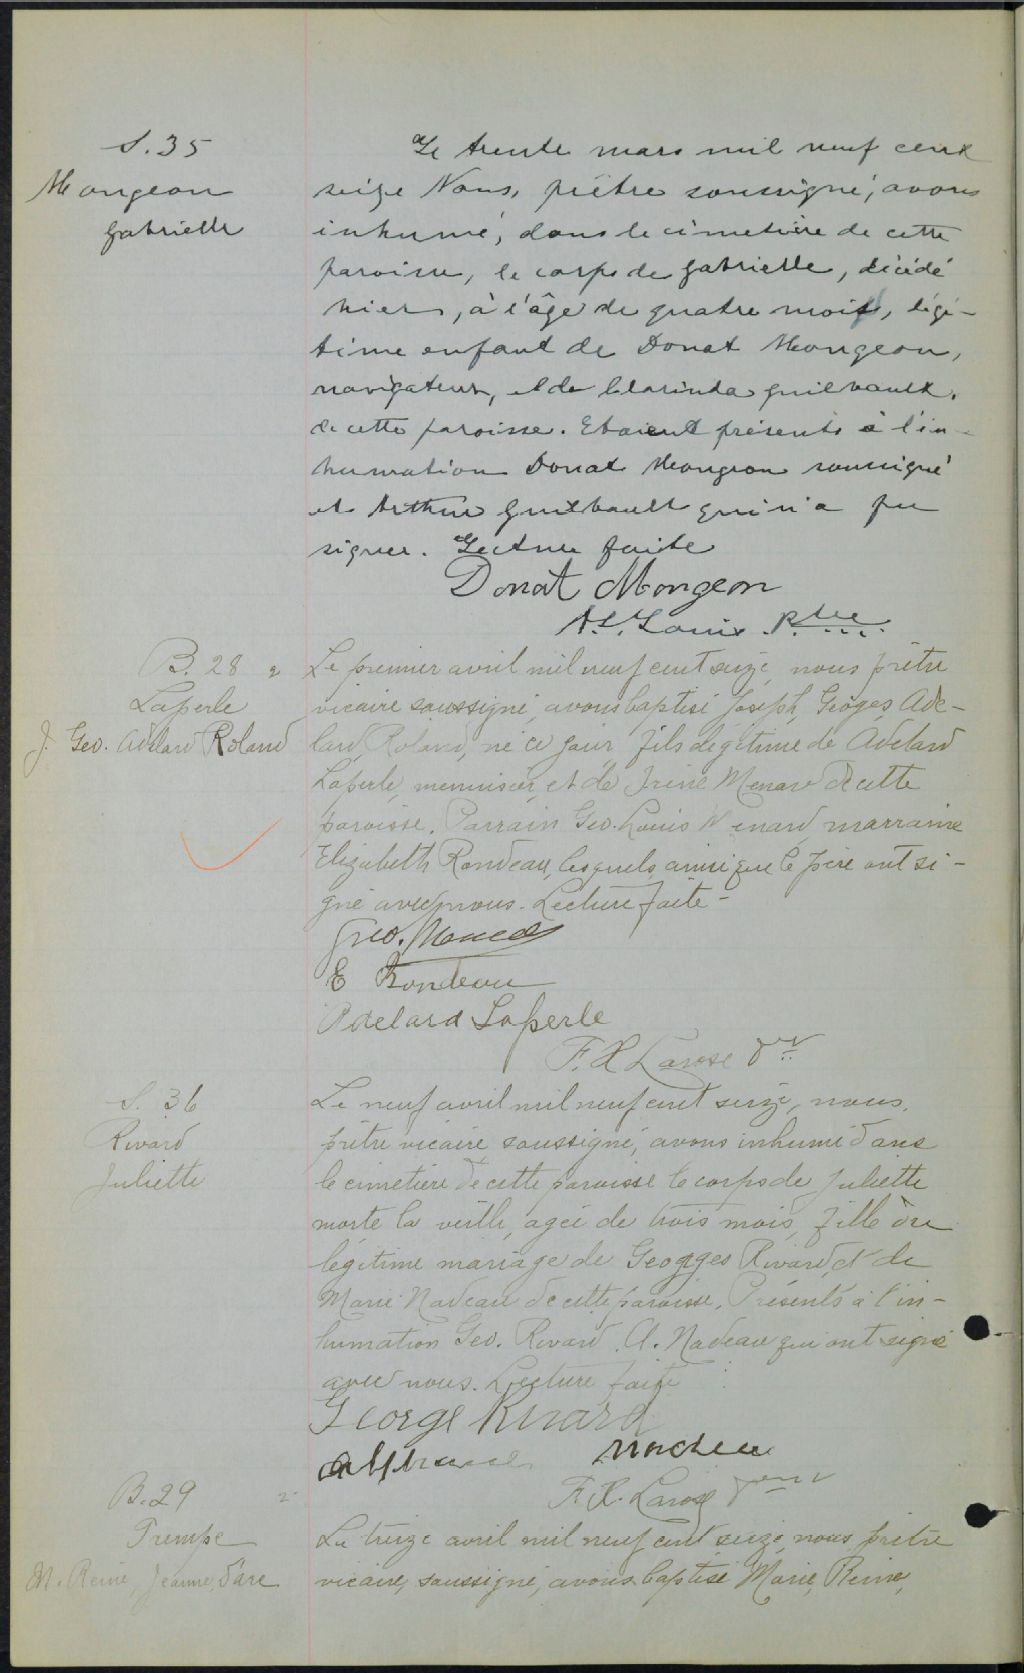 S. 35
Mongeon
Gabrielle
Le trente mars mil neuf cent
seize Nous, prêtre soussigné, avons
inhumé, dans le cimetière de cette
paroisse, le corps de Gabrielle, décédé
hier, à l'âge de quatre mois, légi-
time enfant de Donat Mongeon,
navigateur, et de Clarinda Guilbault,
de cette paroisse. Etaient présents à l'in-
humation Donat Mongeon soussigné
et Arthur Guilbault qui n'a pu
signer. Lecture faite
Donat Mongeon
A. L. Louis Ptre
B. 28 2
Laperle
J. Geo. Adelard Roland
Le premier avril mil neuf cent seize, nous prêtre
vicaire soussigné, avons baptisé Joseph, Georges, Ade-
lard, Roland, né ce jour, fils légitime de Adelard
Laperle, menuisier, et de Irène Menard de cette
paroisse. Parrain Geo. Louis Menard, marraine
Elizabeth Rondeau, lesquels ainsi que le père ont si-
gné avec nous. Lecture faite -
Geo. Menard
E Rondeau
Adelard Laperle
F. X Larose
S. 36
Rivard
Juliette
Le neuf avril mil neuf cent seize, nous,
prêtre vicaire soussigné, avons inhumé dans
le cimetière de cette paroisse le corps de Juliette
morte la veille, agée de trois mois, fille du
légitime mariage de Georges Rivard, et de
Marie Nadeau de cette paroisse. Présents à l'in-
humation Geo. Rivard, A. Nadeau qui ont signé
avec nous. Lecture faite
George Rivard
Nadeau
F. X. Larose
B. 29 2
Trempe
M. Reine, Jeanne, d'arc
Le treize avril mil neuf cent seize, nous prêtre
vicaire, soussigné, avons baptisé Marie, Reine,